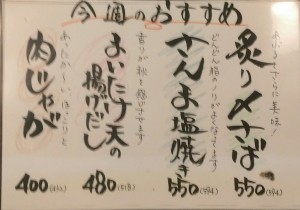 今週のおすすめ
あぶるとさらに美味!
炙り〆さば
550
どんどん脂のノリがよくなってます
さんま塩焼き
550
香りが秋を感じさせます
まいたけ天の
揚げだし
480
あったか〜い ほっこりと
肉じゃが
400